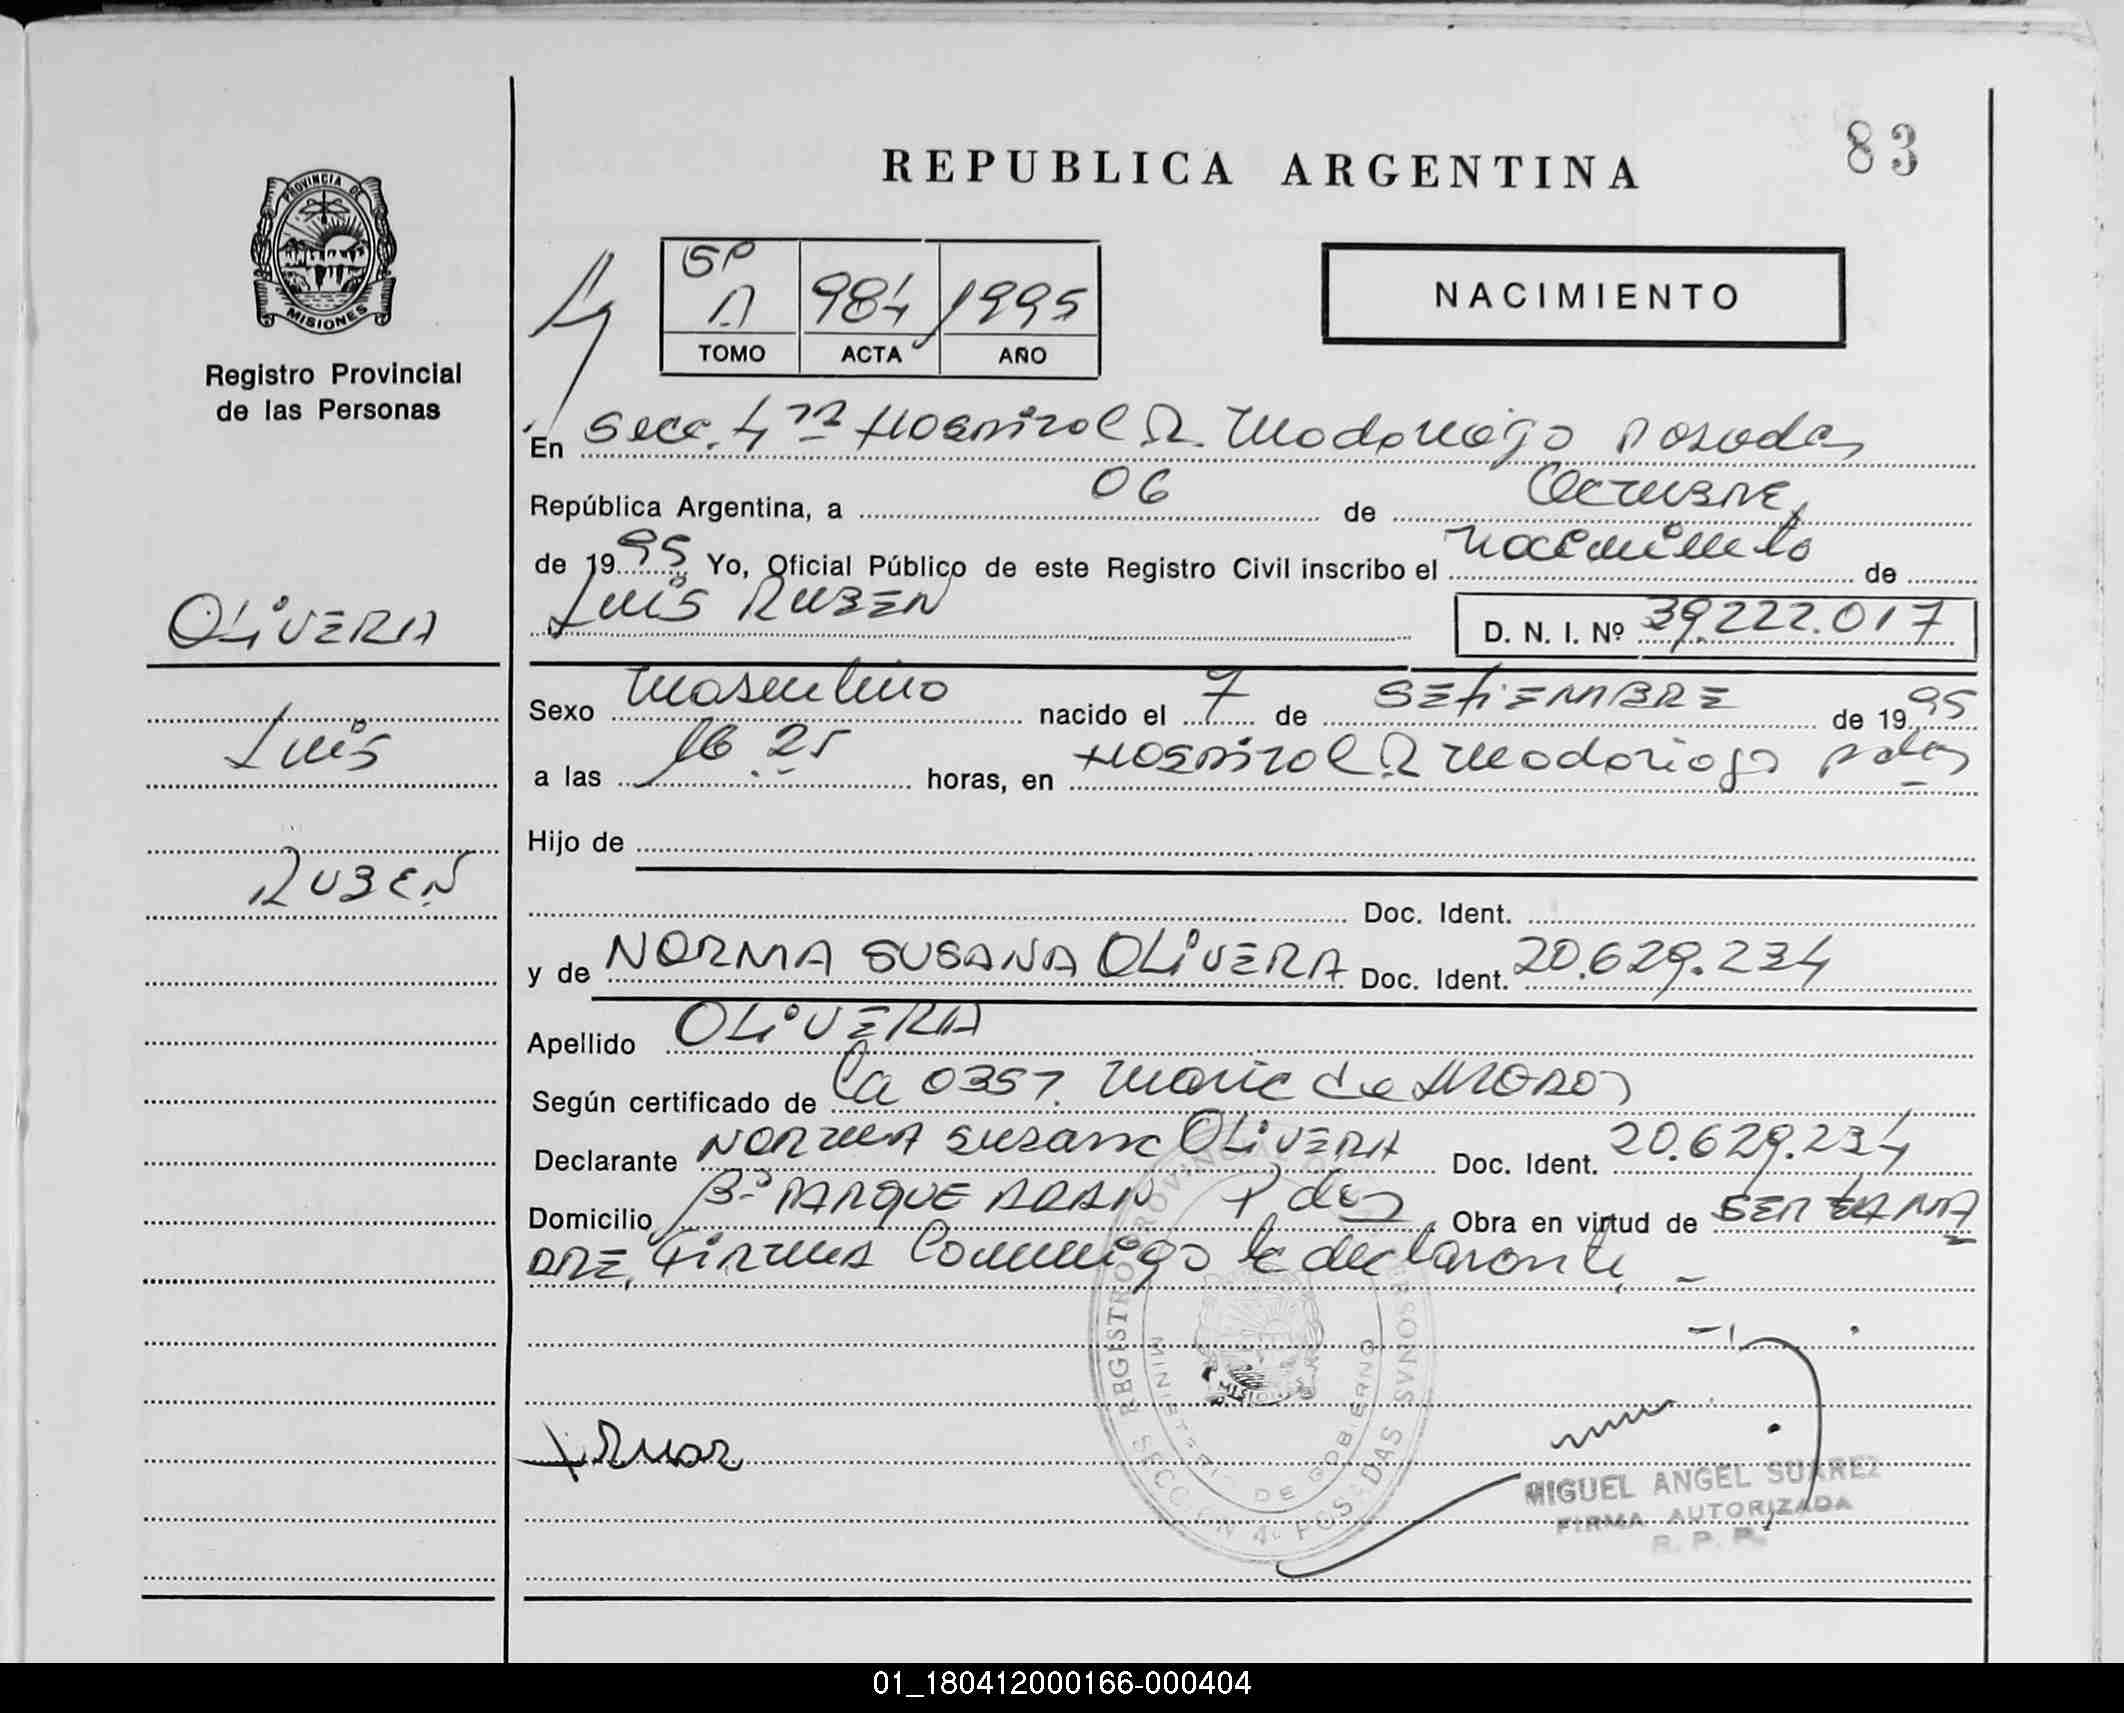 83
REPUBLICA ARGENTINA
PROVINCIA DE
MISIONES
Registro Provincial
de las Personas
5P
A 984 1995
TOMO ACTA AÑO
NACIMIENTO
4
En Secc. 4ta Hospital R. Madariaga Posadas
República Argentina, a 06 de Octubre
de 1995 Yo, Oficial Público de este Registro Civil inscribo el nacimiento de
LUIS RUBEN
D. N. I. Nº 39.222.017
OLIVERA
LUIS
RUBEN
Sexo masculino nacido el 7 de SETIEMBRE de 1995
a las 16 25 horas, en Hospital R Madariaga Pdas
Hijo de
Doc. Ident.
y de NORMA SUSANA OLIVERA Doc. Ident. 20.629.234
Apellido OLIVERA
Según certificado de la 0357. Maria de
Declarante NORMA Susana OLIVERA Doc. Ident. 20.629.234
Domicilio Bº PARQUE ADAM Pdas Obra en virtud de SER LA MA
DRE, Firma Conmigo la declarante -
REGISTRO PROVINCIAL DE LAS PERSONAS
MINISTERIO DE GOBIERNO
MISIONES
SECCION 4a. POSADAS
MIGUEL ANGEL SUAREZ
FIRMA AUTORIZADA
R. P. P.
01_180412000166-000404